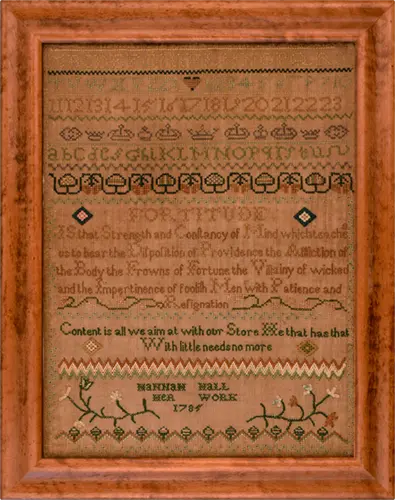 11 12 13 14 15 16 17 18 19 20 21 22 23
abcdefghiKLMNOPqrstuv
FORTITUDE
IS that Strength and Constancy of Mind which teache
us to bear the Disposition of Providence the Affliction of
the Body the Frowns of Fortune the Villainy of wicked
and the Impertinence of foolish Men with Patience and
Resignation
Content is all we aim at with our Store He that has that
With little needs no more
HANNAH HALL
HER WORK
1785